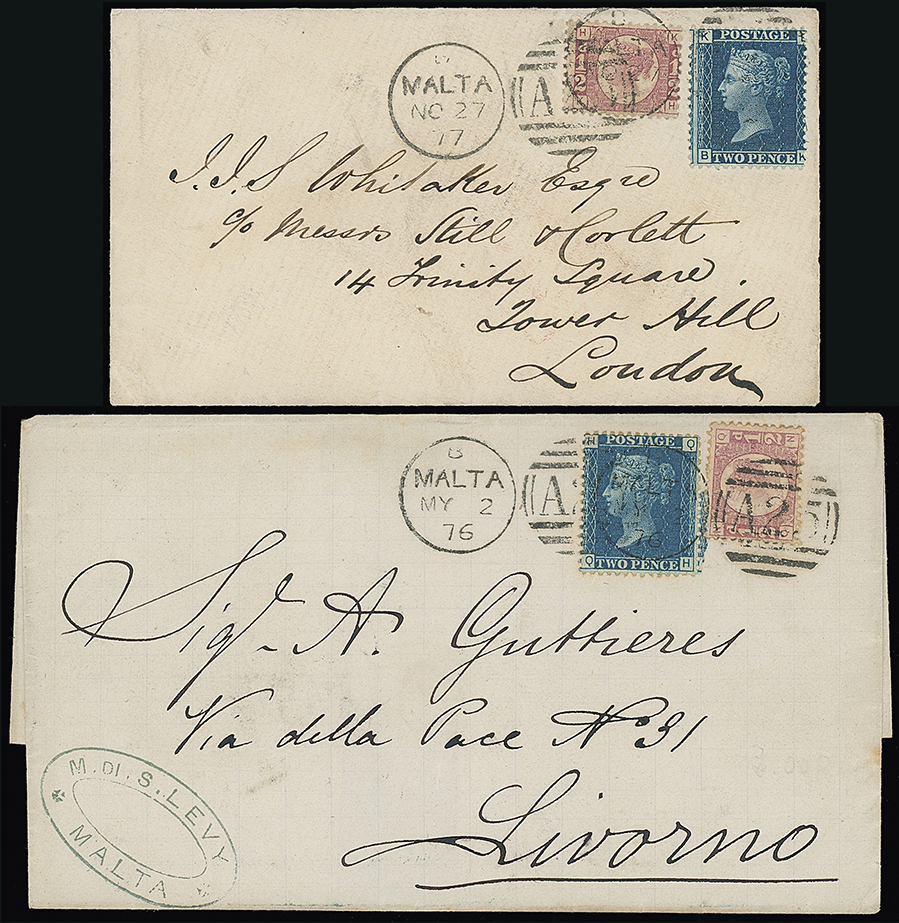 B
MALTA
NO 27
77
A
K K
POSTAGE
TWO PENCE
B K
J.J.S Whitaker Esqre
c/o Messrs Still & Corlett
14 Trinity Square.
Tower Hill
London
B
MALTA
MY 2
76
H Q
POSTAGE
TWO PENCE
Q H
A25
Sigr A. Guttieres
Via della Pace No 31
Livorno
M. DI. S. LEVY
MALTA